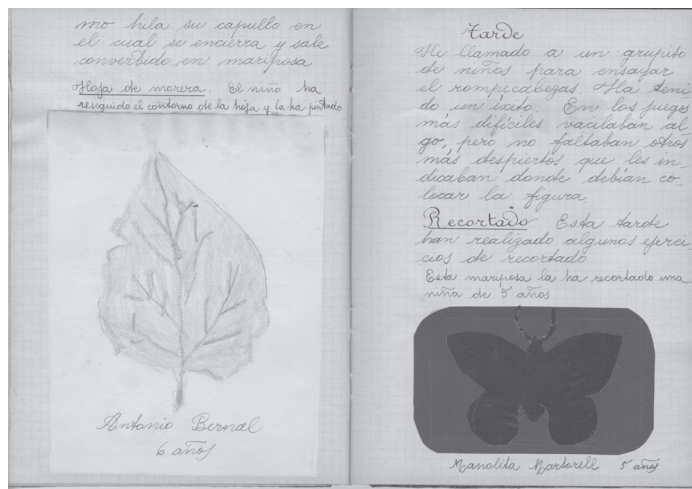 mo hila su capullo en
el cual se encierra y sale
convertido en mariposa
Hoja de morera. El niño ha
reseguido el contorno de la hoja y la ha pintado
Antonio Bernal
6 años
Tarde
He llamado a un grupito
de niños para ensayar
el rompecabezas. Ha teni-
do un éxito. En los juegos
más difíciles vacilaban al-
go, pero no faltaban otros
más despiertos que les in-
dicaban donde debían co-
locar la figura.
Recortado. Esta tarde
han realizado algunos ejerci-
cios de recortado
Esta mariposa la ha recortado una
niña de 5 años
Manolita Martorell 5 años